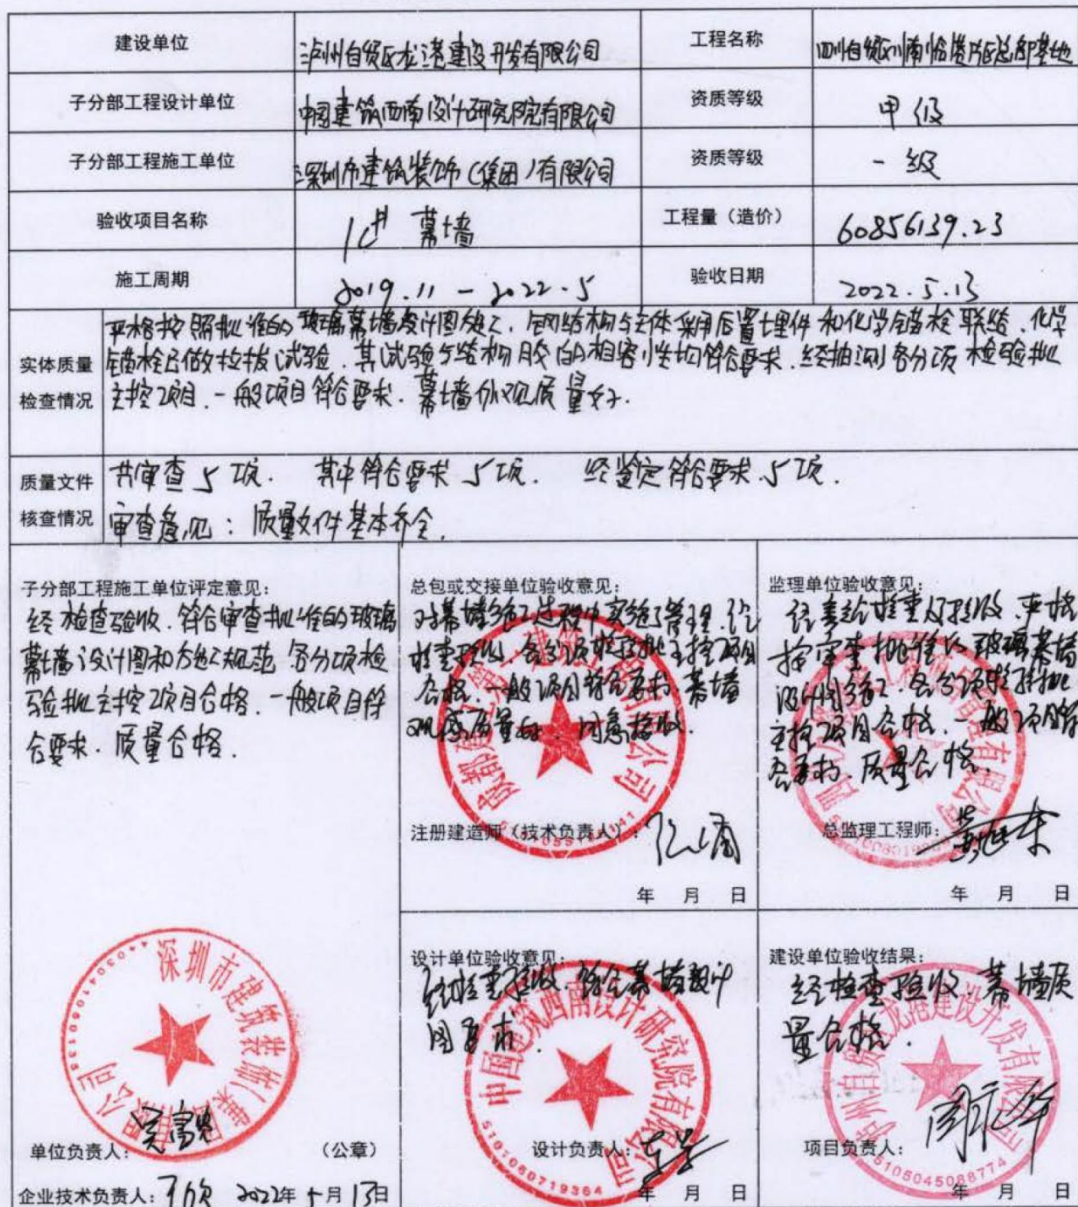 建设单位 泸州自贸区龙港建设开发有限公司 工程名称 四川自贸区川南临港片区总部基地
子分部工程设计单位 中国建筑西南设计研究院有限公司 资质等级 甲级
子分部工程施工单位 深圳市建筑装饰(集团)有限公司 资质等级 一级
验收项目名称 1#幕墙 工程量(造价) 60856139.23
施工周期 2019.11-2022.5 验收日期 2022.5.13
实体质量
检查情况
严格按照批准的玻璃幕墙设计图施工,钢结构与主体采用后置埋件和化学锚栓联结,化学
锚栓已做拉拔试验,其试验与结构胶的相容性均符合要求.经抽测各分项检验批
主控项目,一般项目符合要求.幕墙外观质量好.
质量文件
核查情况
共审查5项. 其中符合要求5项. 经鉴定符合要求5项.
审查意见:质量文件基本齐全.
子分部工程施工单位评定意见:
经检查验收,符合审查批准的玻璃
幕墙设计图和施工规范,各分项检
验批主控项目合格.一般项目符
合要求.质量合格.
深圳市建筑装饰(集团)有限公司
单位负责人: (公章)
企业技术负责人: 2022年5月13日
总包或交接单位验收意见:
对幕墙施工过程中实施了管理,经
检查验收,各分项检验批主控项目
合格,一般项目符合要求.幕墙
观感质量好,同意验收.
注册建造师(技术负责人):
年 月 日
监理单位验收意见:
经素检查及验收,严格
按审查批准的玻璃幕墙
设计图施工,各分项检验批
主控项目合格,一般项目符
合要求,质量合格.
总监理工程师:
年 月 日
设计单位验收意见:
经检查验收,符合幕墙设计
图要求.
中国建筑西南设计研究院有限公司
5101090719364
设计负责人:
年 月 日
建设单位验收结果:
经检查验收,幕墙质
量合格.
泸州自贸区龙港建设开发有限公司
5105045088774
项目负责人:
年 月 日